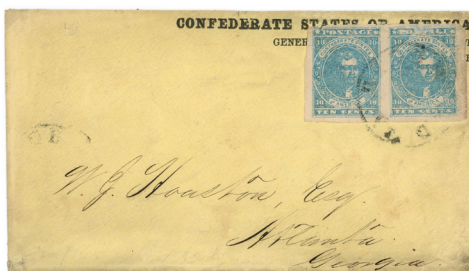 CONFEDERATE STATES OF AMERICA
GENER
POSTAGE
10 10
10 10
TEN CENTS TEN CENTS
W. J. Houston, Esq.
Atlanta.
Georgia.